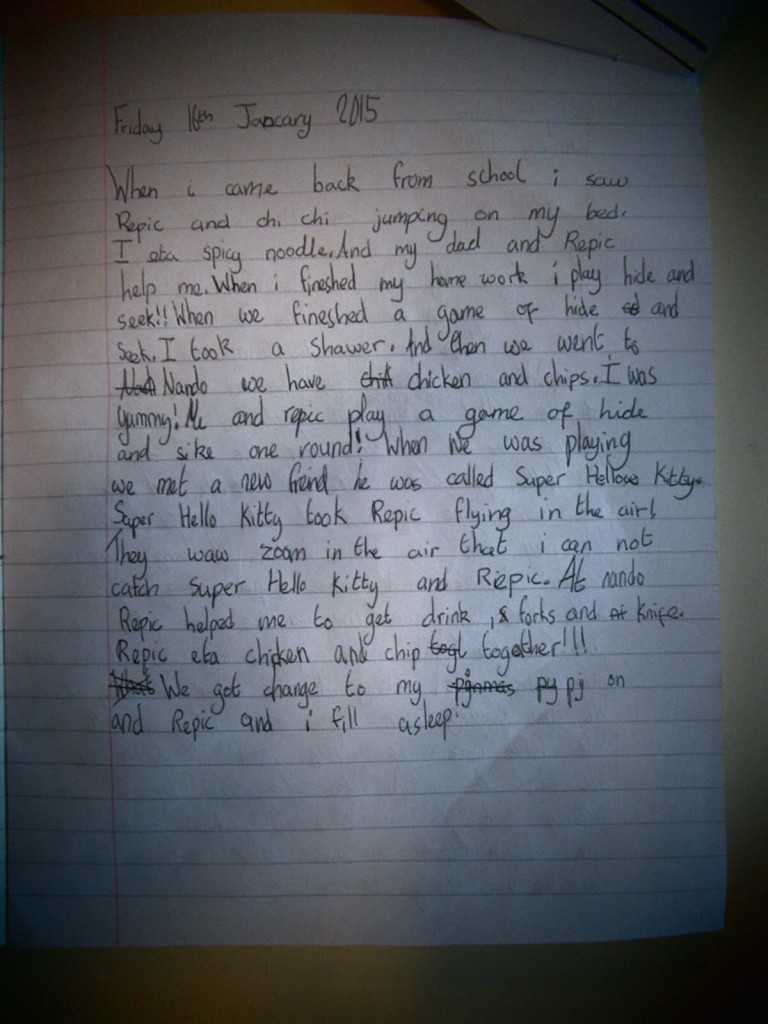 Friday 16th Jancary 2015
When i came back from school i saw
Repic and chi chi jumping on my bed.
I eta spicy noodle. And my dad and Repic
help me. When i fineshed my home work i play hide and
seek!! When we fineshed a game of hide and
Seek. I took a Shawer. And then we went to
Nando we have chicken and chips. I was
yummy! Me and repic play a game of hide
and sike one round! When we was playing
we met a new freind he was called Super Hellow Kitty.
Super Hello Kitty took Repic flying in the air!
They waw zoam in the air that i can not
catch Super Hello Kitty and Riepic. At nando
Repic helped me to get drink, & forks and knife.
Repic eta chicken and chip together!!!
We got change to my py pj on
and Repic and i fill asleep.